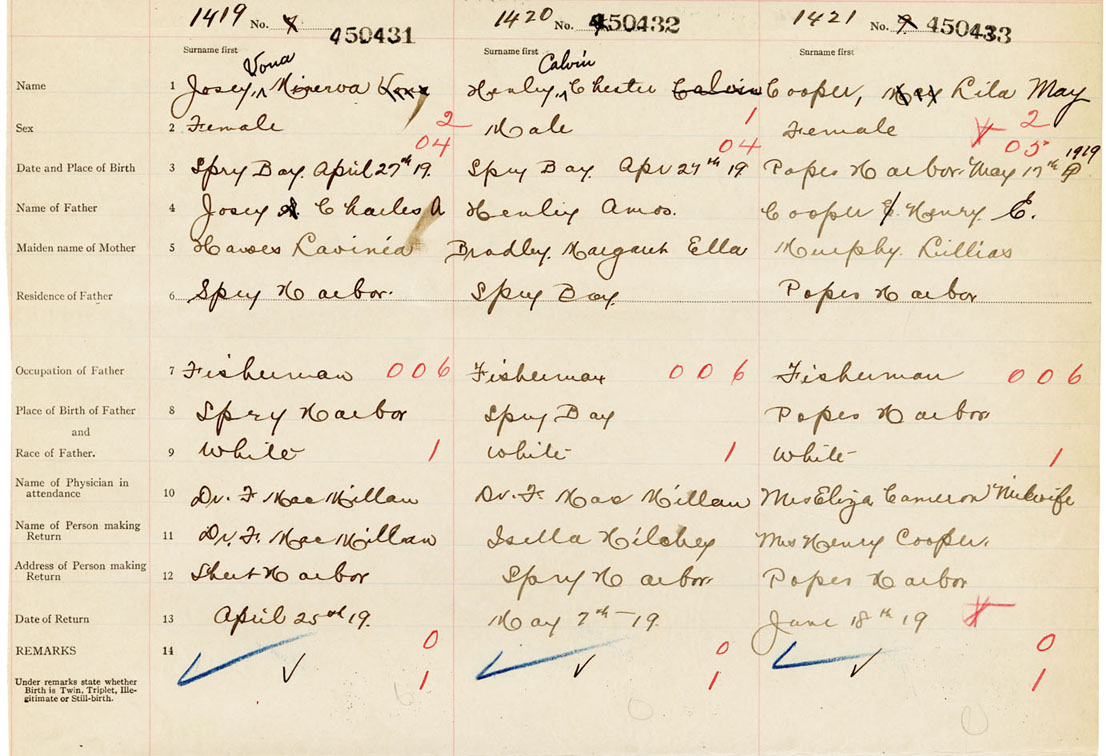 1419 No. 450431 1420 No. 450432 1421 No. 450433
Surname first Surname first Surname first
Vona Calvin
Name 1 Josey, Minerva Vona Henley, Chester Calvin Cooper, May Lila May
Sex 2 Female 2 Male 1 Female 2
04 04 05 1919
Date and Place of Birth 3 Spry Bay. April 27th 19. Spry Bay. Apr 27th 19 Popes Harbor. May 17th
Name of Father 4 Josey A Charles A Henley Amos. Cooper E. Henry E.
Maiden name of Mother 5 Hawes Lavinia Bradley. Margaret Ella Murphy. Lillias
Residence of Father 6 Spry Harbor. Spry Bay. Popes Harbor
Occupation of Father 7 Fisherman 006 Fisherman 006 Fisherman 006
Place of Birth of Father 8 Spry Harbor Spry Bay Popes Harbor
and
Race of Father. 9 White 1 White 1 White 1
Name of Physician in attendance 10 Dr. F MacMillan Dr. F. MacMillan Mrs Eliza Cameron Midwife
Name of Person making Return 11 Dr. F. MacMillan Isella Hilchey Mrs Henry Cooper.
Address of Person making Return 12 Sheet Harbor Spry Harbor. Popes Harbor
Date of Return 13 April 25th 19. May 7th - 19. June 18th 19
REMARKS 14 0 0 0
Under remarks state whether Birth is Twin, Triplet, Ille-
gitimate or Still-birth. 1 1 1